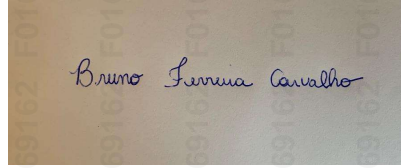 Bruno Ferreira Carvalho